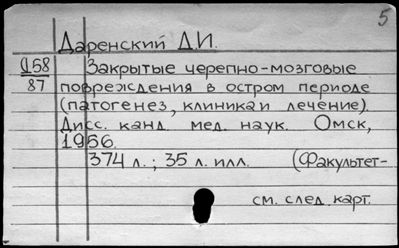 5
Даренский Д.И.
Д58
87
Закрытые черепно-мозговые
повреждения в остром периоде
(патогенез, клиника и лечение).
Дисс. канд. мед. наук. Омск,
1966.
374 л.; 35 л. илл. (Факультет-
см. след. карт.